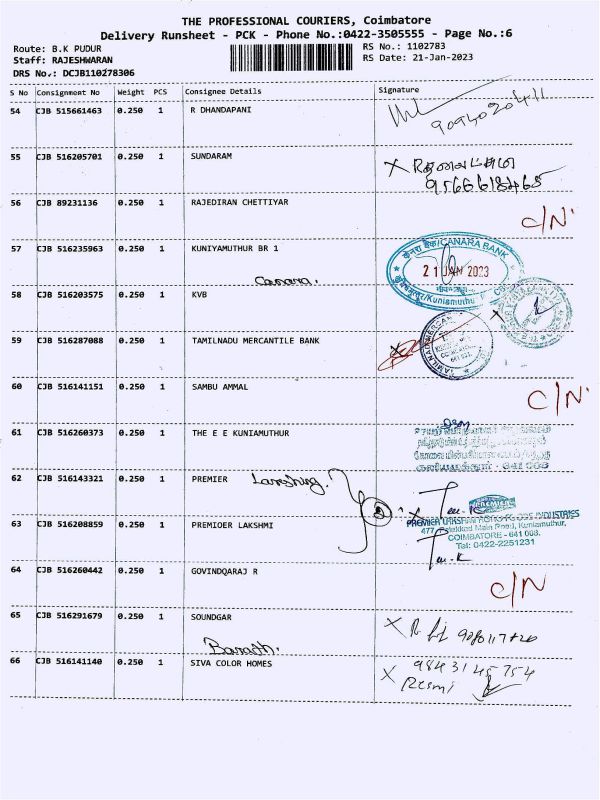 THE PROFESSIONAL COURIERS, Coimbatore
Delivery Runsheet - PCK - Phone No.:0422-3505555 - Page No.:6
Route: B.K PUDUR RS No.: 1102783
Staff: RAJESHWARAN RS Date: 21-Jan-2023
DRS No.: DCJB110278306
S No Consignment No Weight PCS Consignee Details Signature
54 CJB 515661463 0.250 1 R DHANDAPANI
9094020411
55 CJB 516205701 0.250 1 SUNDARAM
9566618465
56 CJB 89231136 0.250 1 RAJEDIRAN CHETTIYAR
C/N
57 CJB 516235963 0.250 1 KUNIYAMUTHUR BR 1
केनरा बैंक/CANARA BANK
21 JAN 2023
Canara.
58 CJB 516203575 0.250 1 KVB
59 CJB 516287088 0.250 1 TAMILNADU MERCANTILE BANK
60 CJB 516141151 0.250 1 SAMBU AMMAL
C/N
61 CJB 516260373 0.250 1 THE E E KUNIAMUTHUR
62 CJB 516143321 0.250 1 PREMIER
63 CJB 516208859 0.250 1 PREMIOER LAKSHMI
477, Palakkad Main Road, Kuniamuthur,
COIMBATORE - 641 008.
Tel: 0422-2251231
64 CJB 516260442 0.250 1 GOVINDQARAJ R
C/N
65 CJB 516291679 0.250 1 SOUNDGAR
Barath.
66 CJB 516141140 0.250 1 SIVA COLOR HOMES
9843145754